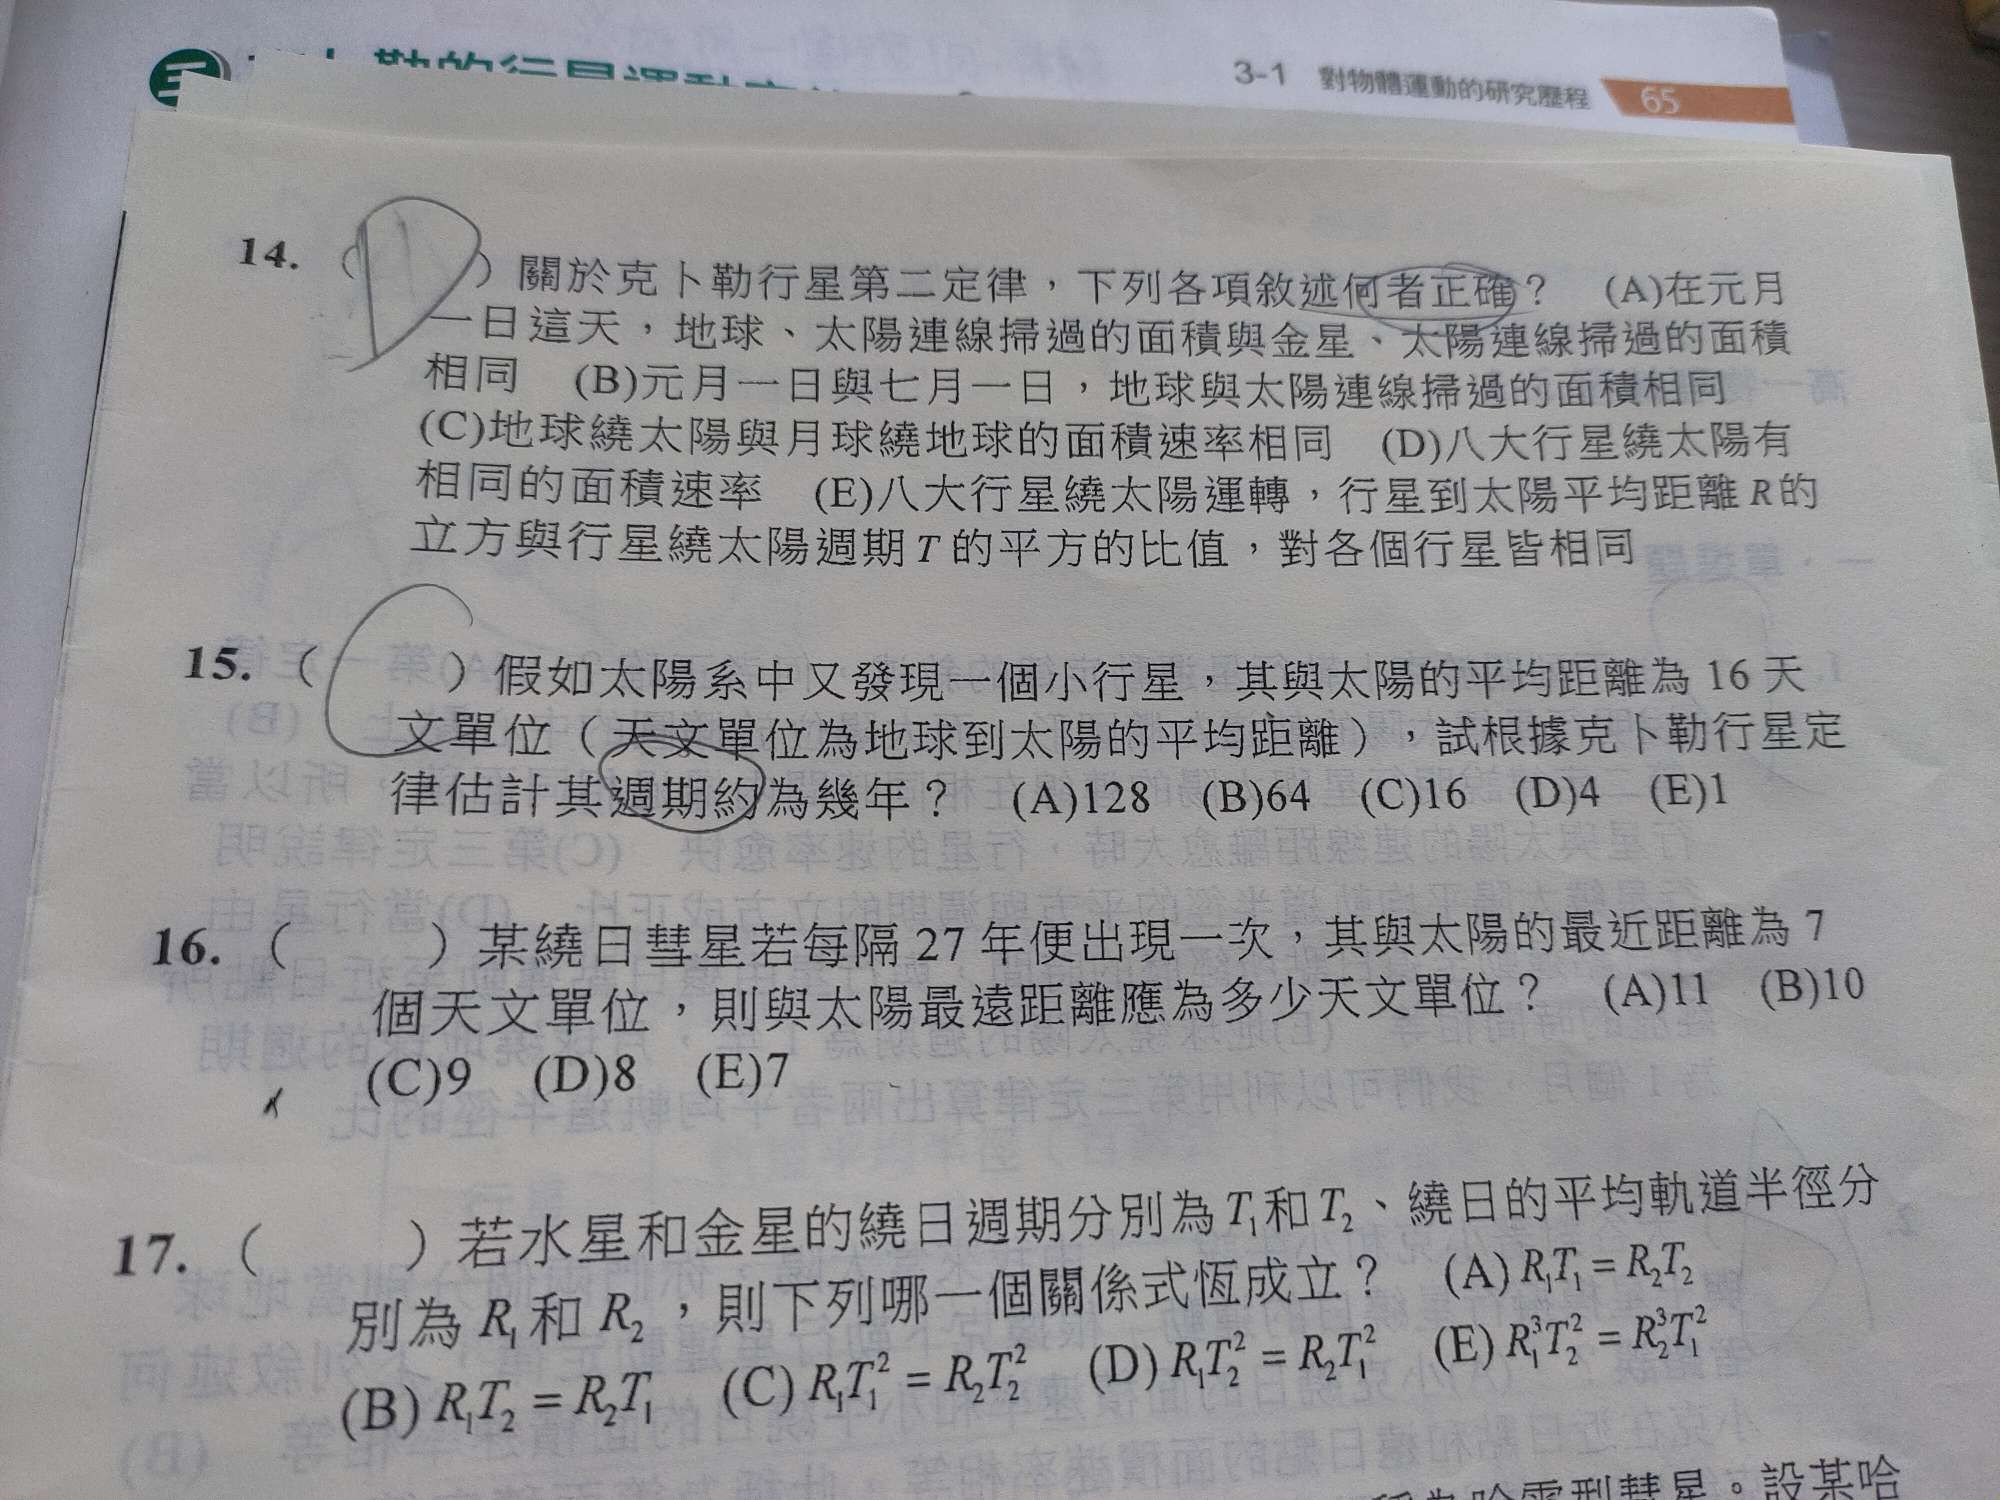 三
勒的行星運動定
3-1 對物體運動的研究歷程 65
14. ( )關於克卜勒行星第二定律，下列各項敘述何者正確？ (A)在元月
一日這天，地球、太陽連線掃過的面積與金星、太陽連線掃過的面積
相同 (B)元月一日與七月一日，地球與太陽連線掃過的面積相同
(C)地球繞太陽與月球繞地球的面積速率相同 (D)八大行星繞太陽有
相同的面積速率 (E)八大行星繞太陽運轉，行星到太陽平均距離R的
立方與行星繞太陽週期T的平方的比值，對各個行星皆相同
15. ( )假如太陽系中又發現一個小行星，其與太陽的平均距離為 16 天
文單位（天文單位為地球到太陽的平均距離），試根據克卜勒行星定
律估計其週期約為幾年？ (A)128 (B)64 (C)16 (D)4 (E)1
16. ( )某繞日彗星若每隔 27 年便出現一次，其與太陽的最近距離為 7
個天文單位，則與太陽最遠距離應為多少天文單位？ (A)11 (B)10
(C)9 (D)8 (E)7
17. ( )若水星和金星的繞日週期分別為 T₁和T₂、繞日的平均軌道半徑分
別為 R₁和 R₂，則下列哪一個關係式恆成立？ (A) R₁T₁ = R₂T₂
(B) R₁T₂ = R₂T₁ (C) R₁T₁² = R₂T₂² (D) R₁T₂² = R₂T₁² (E) R₁³T₂² = R₂³T₁²
為哈雷型彗星。設某哈